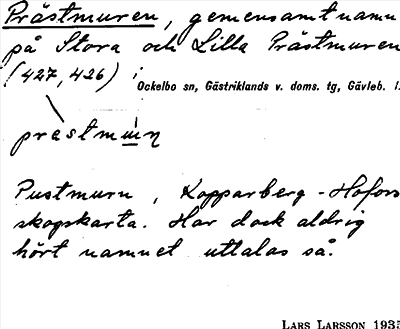 Prästmuren, gemensamt namn
på Stora och Lilla Prästmuren
(427, 426) i
Ockelbo sn, Gästriklands v. doms. tg, Gävleb. l.
prastmun
Pustmurn, Kopparberg-Hofors
skogskarta. Har dock aldrig
hört namnet uttalas så.
LARS LARSSON 1935